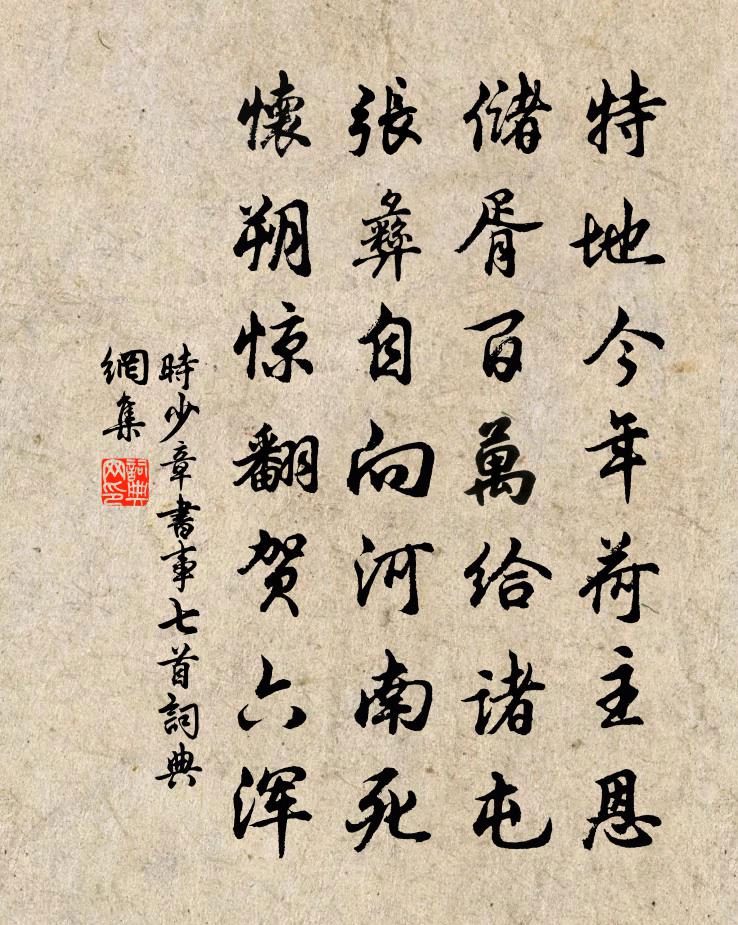 特地今年荷主恩
儲胥百萬給諸屯
張彝自向河南死
懷朔惊翻贺六浑
時少章書事七首詞典
網集
詞典网印